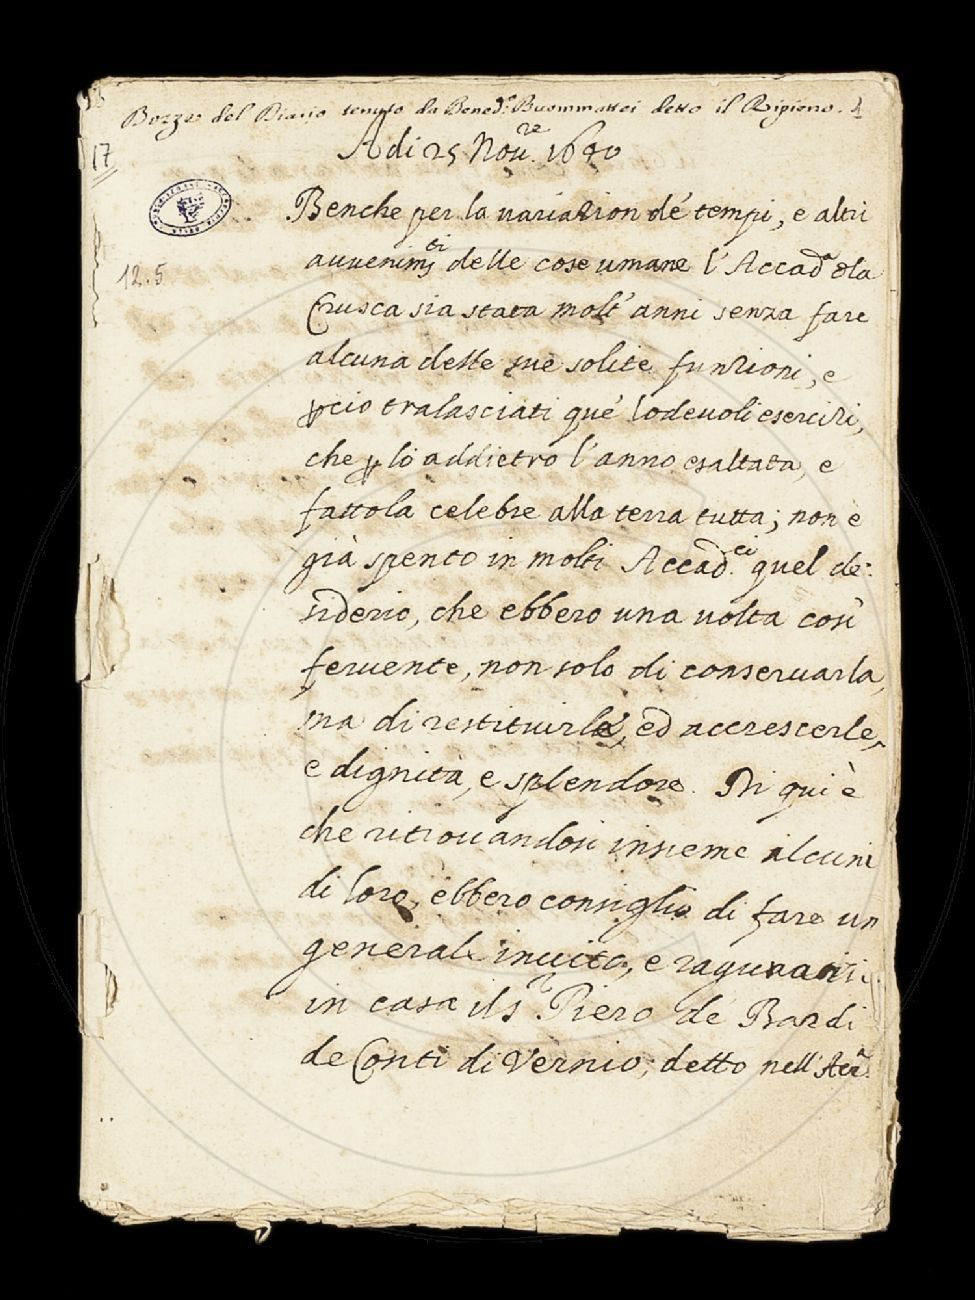 Bozze del Diario tenuto da Bened.º Buommattei detto il Ripieno. 1
17
Adi 25 Nou.re 1640
12.5
Benche per la uariazion de' tempi, e altri
auuenim.ti delle cose umane l'Accad.a d la
Crusca sia stata molt' anni senza fare
alcuna delle sue solite funzioni, e
ꝑcio tralasciati que' lodeuoli esercizi,
che ꝑ lo addietro l'anno esaltata, e
fattola celebre alla terra tutta; non è
già spento in molti Accad.ci quel de:
siderio, che ebbero una uolta così
feruente, non solo di conseruarla,
ma di restituirle, ed accrescerle,
e dignità, e splendore. Di qui è
che ritrouandosi insieme alcuni
di loro, ebbero consiglio di fare un
general inuito, e ragunarsi
in casa il S.r Piero de' Bardi
de Conti di Vernio, detto nell'Acc.a